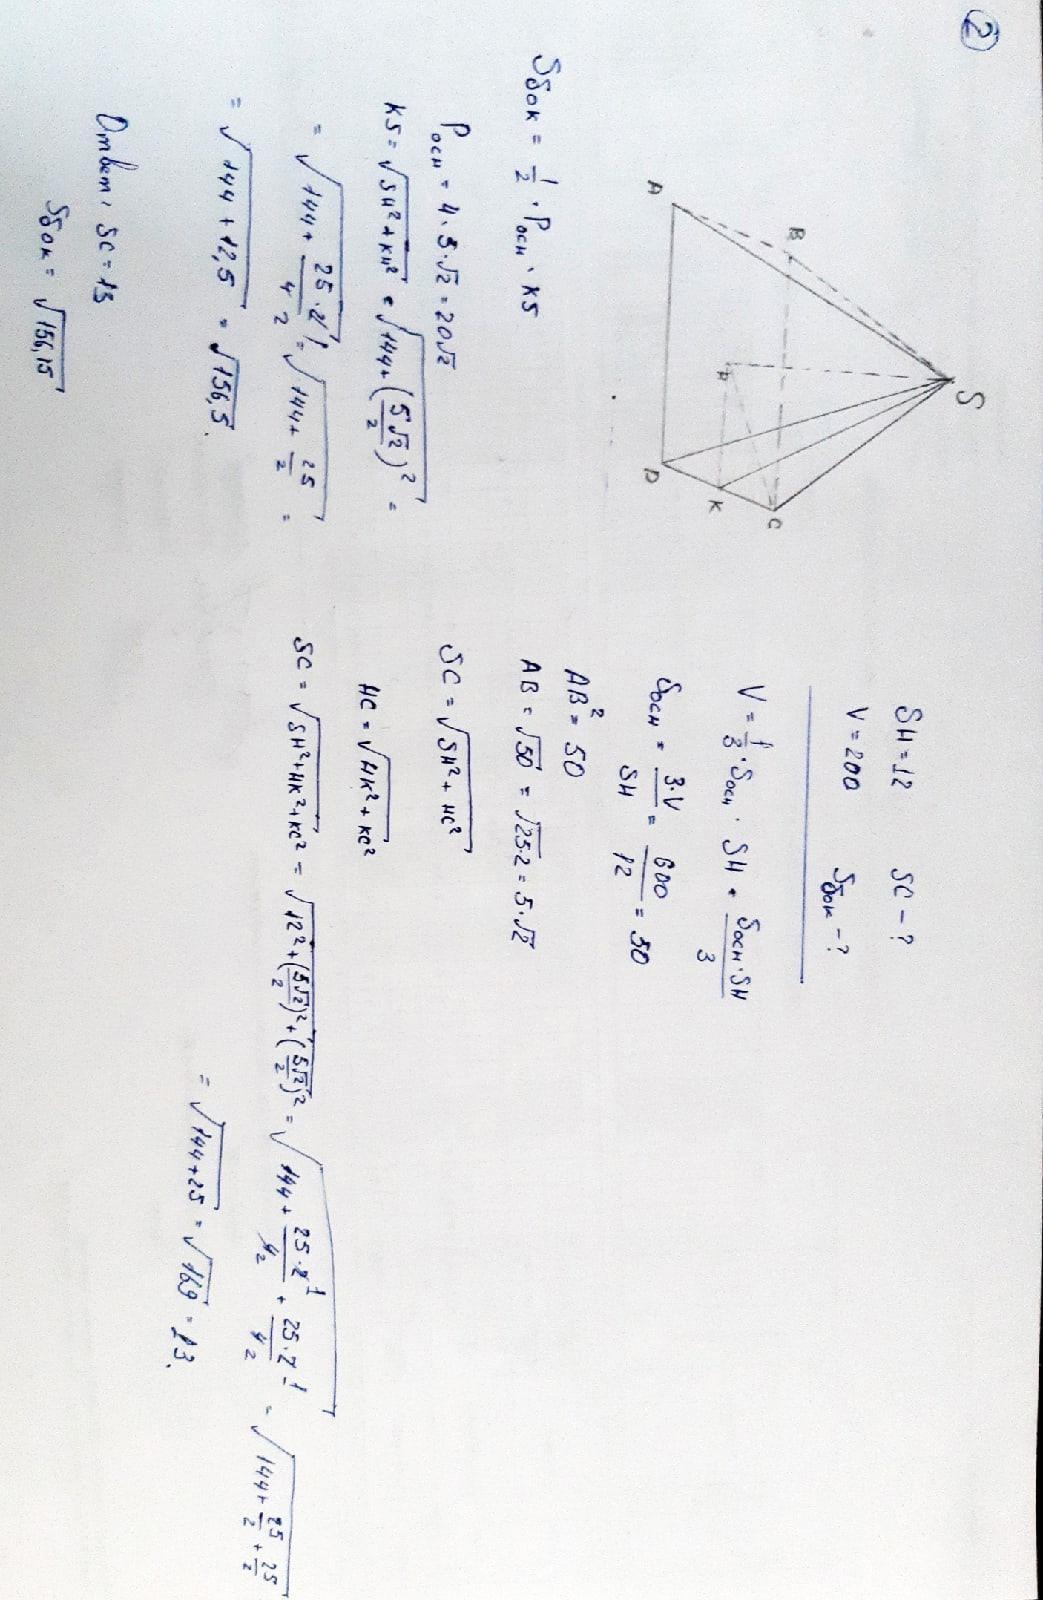 2
S
B
A
H
D
K
C
SH = 12 SC - ?
V = 200 Sбок - ?
V = 1/3 · Sосн · SH = Sосн · SH / 3
Sосн = 3·V / SH = 600 / 12 = 50
AB² = 50
AB = √50 = √25·2 = 5·√2
SC = √SH² + HC²
HC = √HK² + KC²
SC = √SH² + HK² + KC² = √12² + (5√2/2)² + (5√2/2)² = √144 + 25·2/4 + 25·2/4 = √144 + 25/2 + 25/2
= √144+25 = √169 = 13.
Sбок = 1/2 · Pосн · KS
Pосн = 4 · 5·√2 = 20√2
KS = √SH² + KH² = √144 + (5√2/2)² =
= √144 + 25·2/4 = √144 + 25/2 =
= √144 + 12,5 = √156,5.
Ответ: SC = 13
Sбок = √156,15